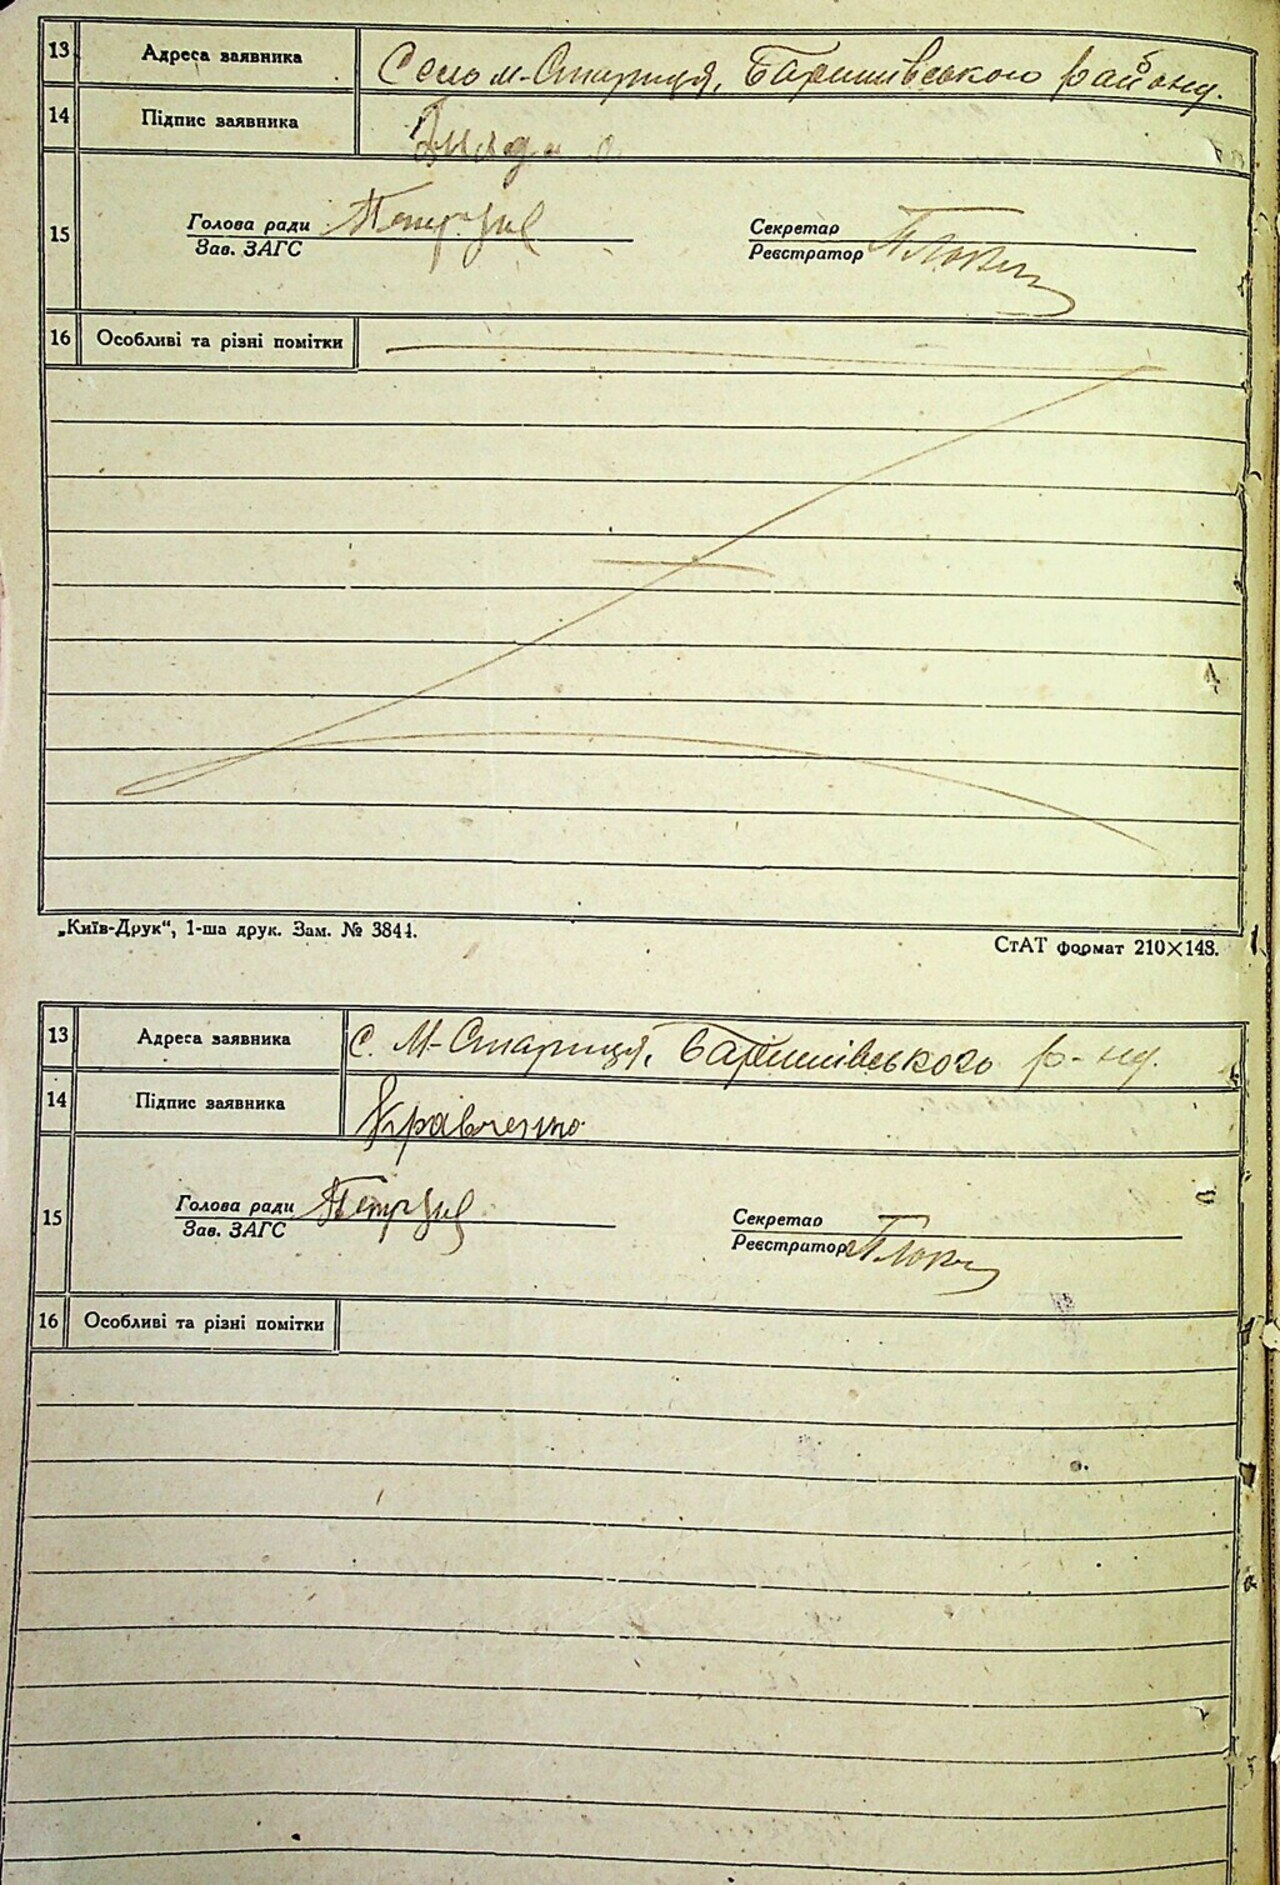 13 Адреса заявника Село м-Стариця, Баришівського району.
14 Підпис заявника
15 Голова ради Секретар
Зав. ЗАГС Реєстратор
16 Особливі та різні помітки
„Київ-Друк“, 1-ша друк. Зам. № 3844.
СтАТ формат 210×148.
13 Адреса заявника С. М-Стариця, Баришівського р-ну.
14 Підпис заявника Кравченко
15 Голова ради Секретар
Зав. ЗАГС Реєстратор
16 Особливі та різні помітки